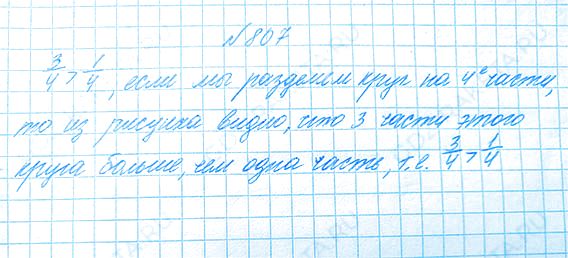 №807
3/4 > 1/4, если мы разделим круг на 4е части,
то из рисунка видно, что 3 части этого
круга больше, чем одна часть, т.е. 3/4 > 1/4